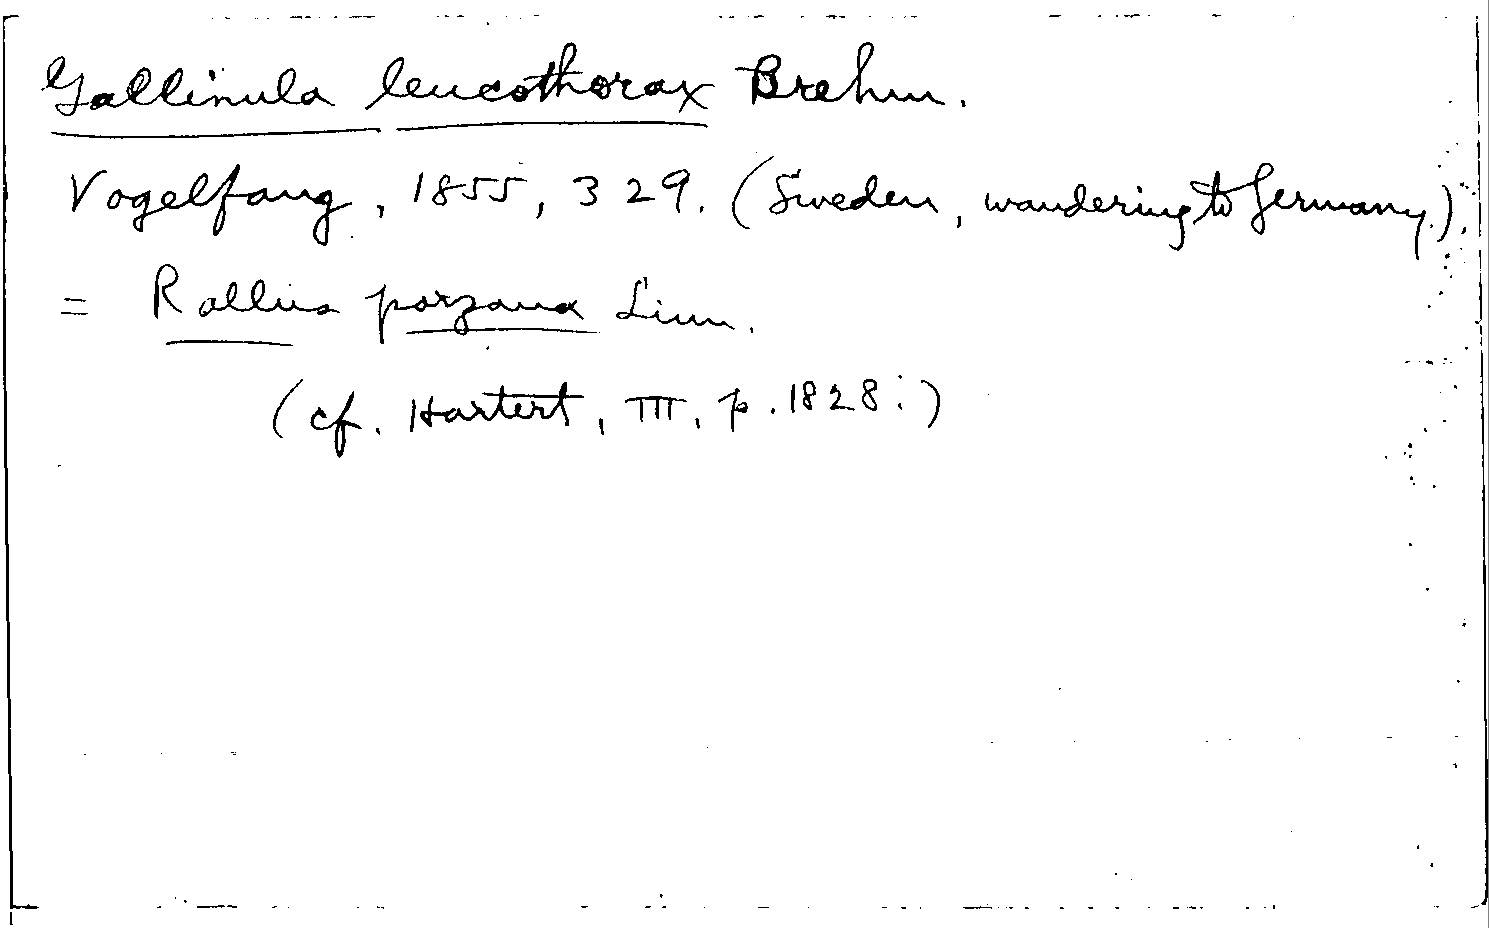 Gallinula leucothorax Brehm.
Vogelfang, 1855, 329. (Sweden, wandering to Germany.).
= Rallus porzana Linn.
(cf. Hartert, III, p. 1828.)